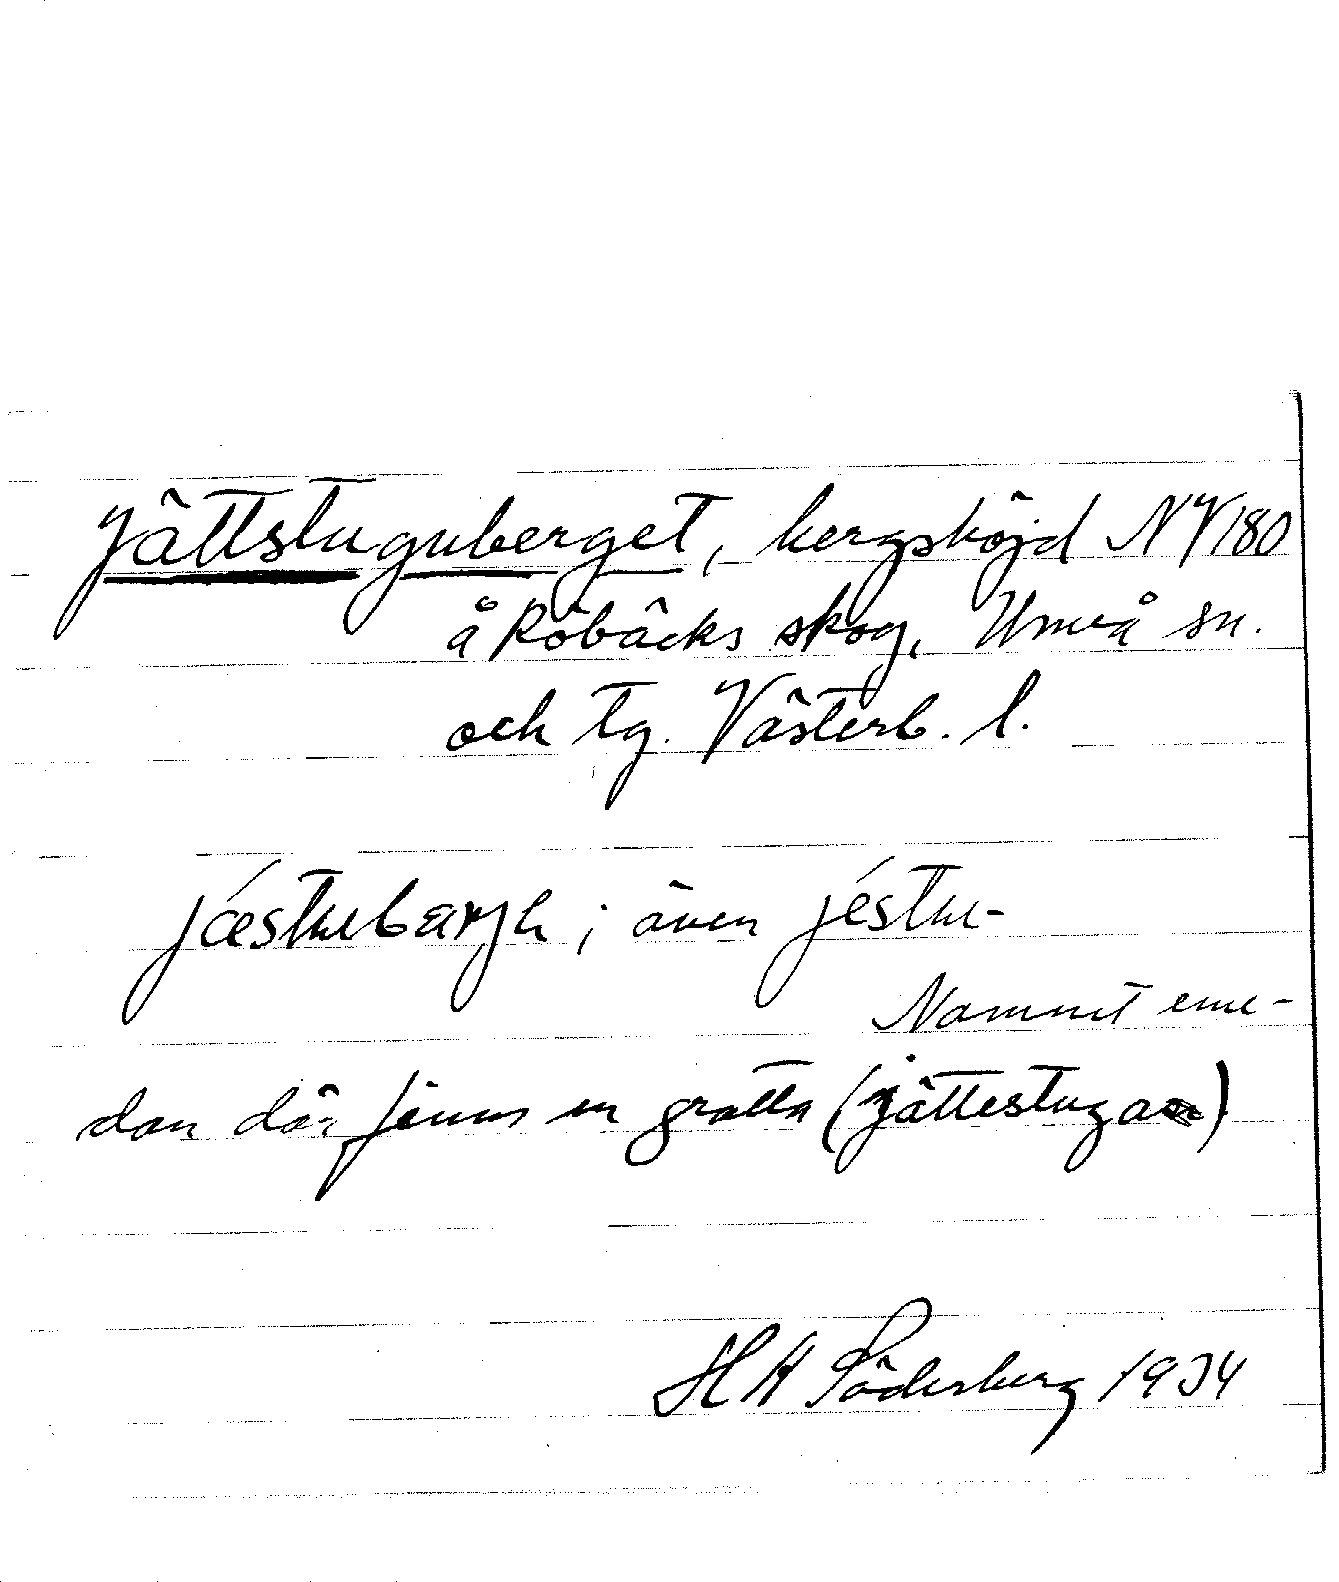 Jättstuguberget, bergshöjd NV 180
å Röbäcks skog, Umeå sn.
och tg. Västerb. l.
jæstubærjə; även jéstu-
Namnet eme-
dan där finns en grotta (jättestugan)
H A Söderberg 1934